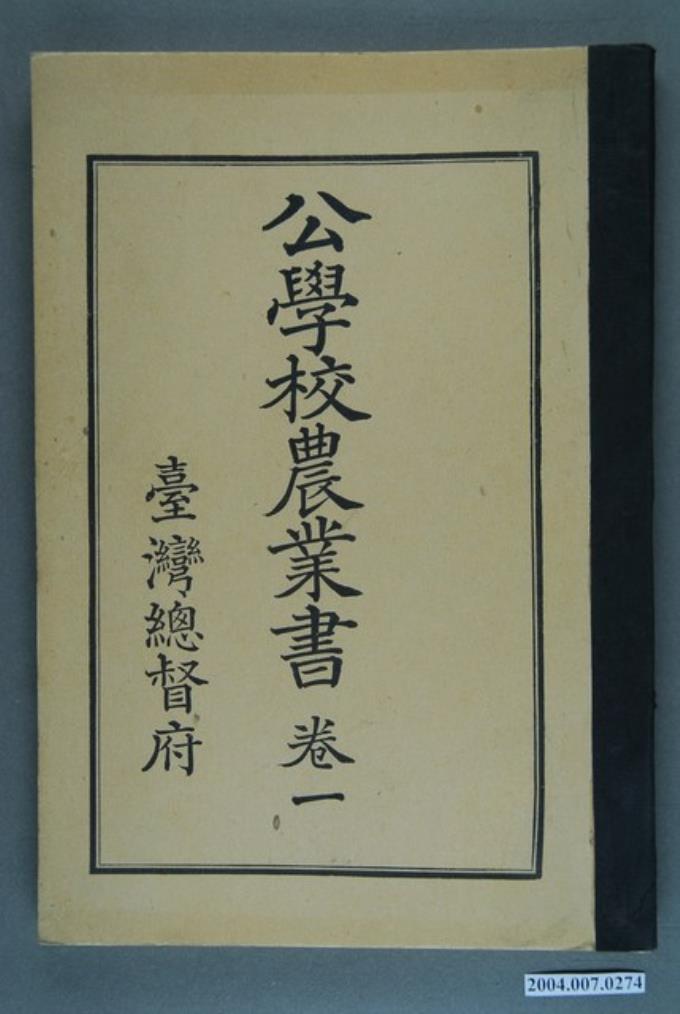 公學校農業書 卷一
臺灣總督府
2004.007.0274